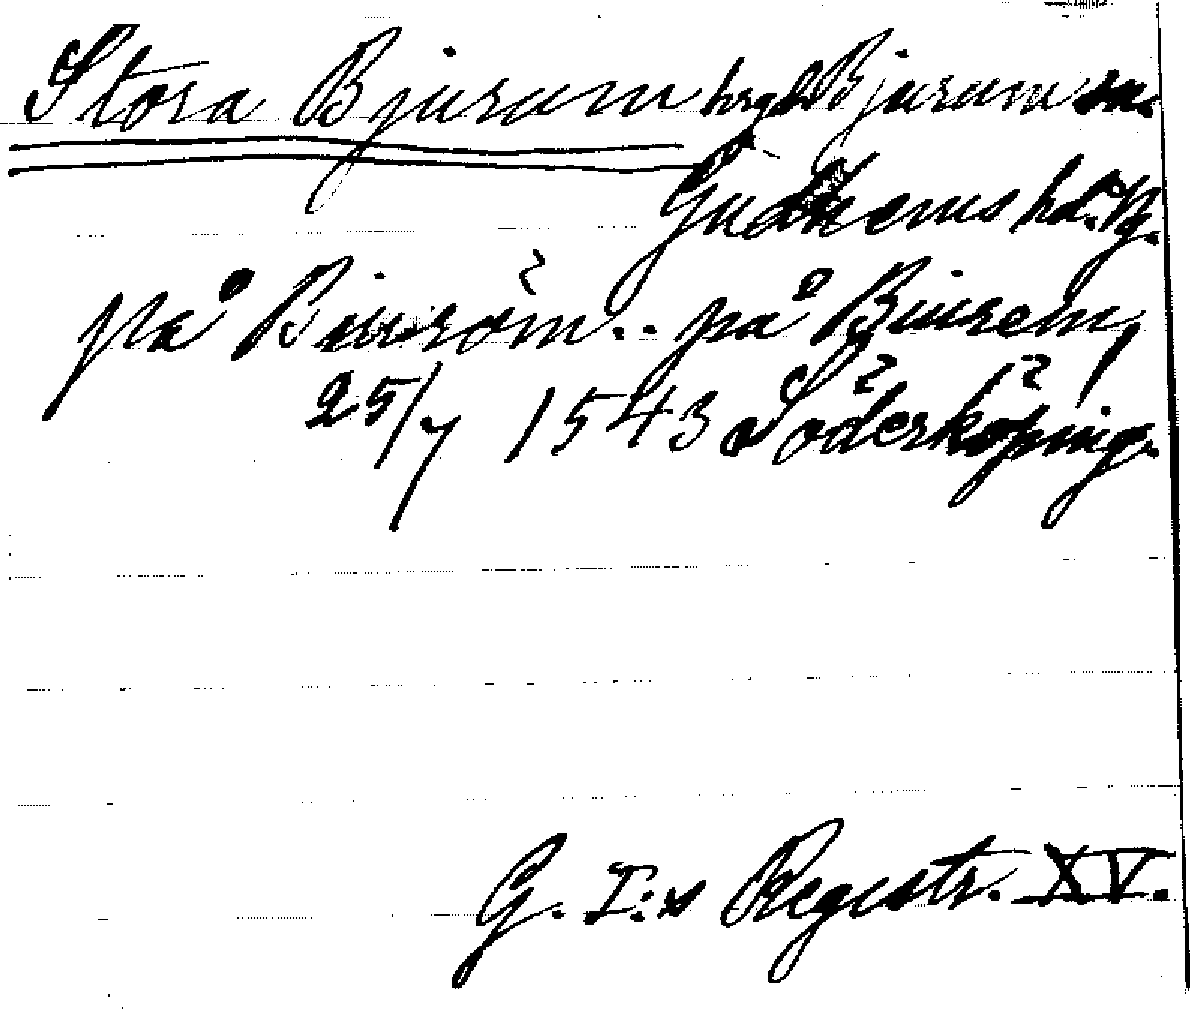 Stora Bjurum hrgd Bjurum sn.
Gudhems hd. Vg.
på Biuröm.. på Biurem,
25/7 1543 Söderköping.
G. I:s Registr. XV.